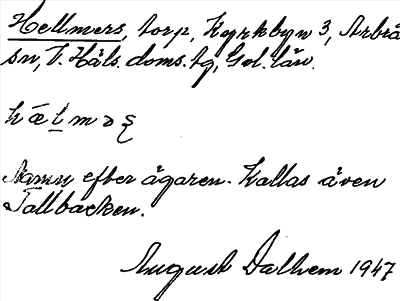 Hellmers, torp, Kyrkbyn 3, Arbrå
sn, V. Häls. doms. tg, Gvl. län.
Namn efter ägaren. Kallas även
Tallbacken.
August Dalhem 1947